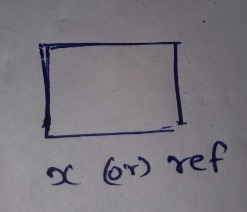 x (or) ref